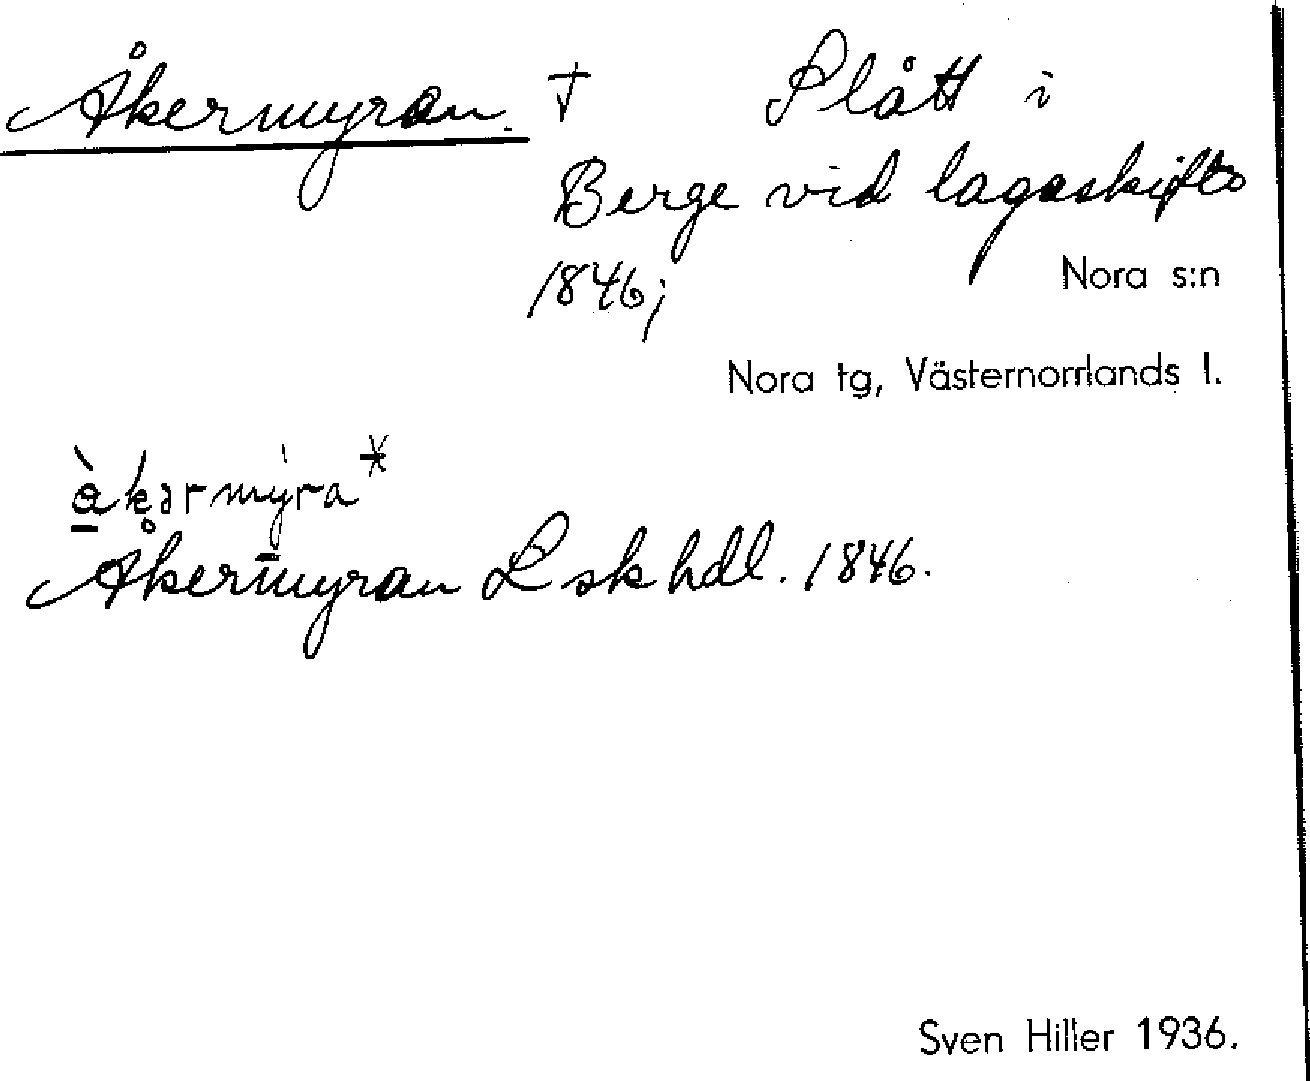 Åkermyran. † Slått i
Berge vid lagaskifts
1846;
Nora s:n
Nora tg, Västernorrlands l.
Åkermyran L sk hdl. 1846.
Sven Hiller 1936.